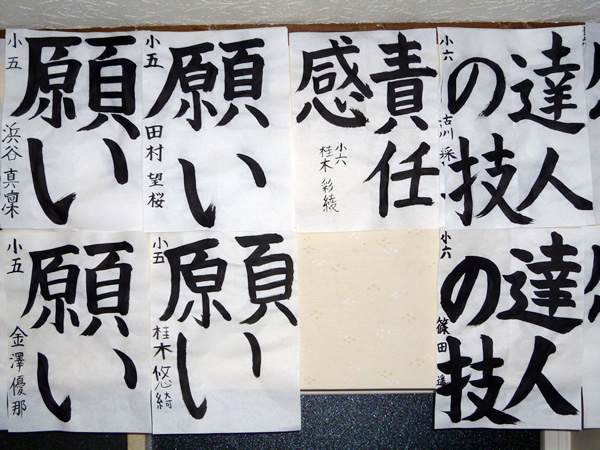 願い
小五
浜谷真凜
願い
小五
田村望桜
責任
感
小六
桂木彩綾
達人
の技
小六
願い
小五
金澤優那
願い
小五
桂木悠綺
達人
の技
小六
篠田遥